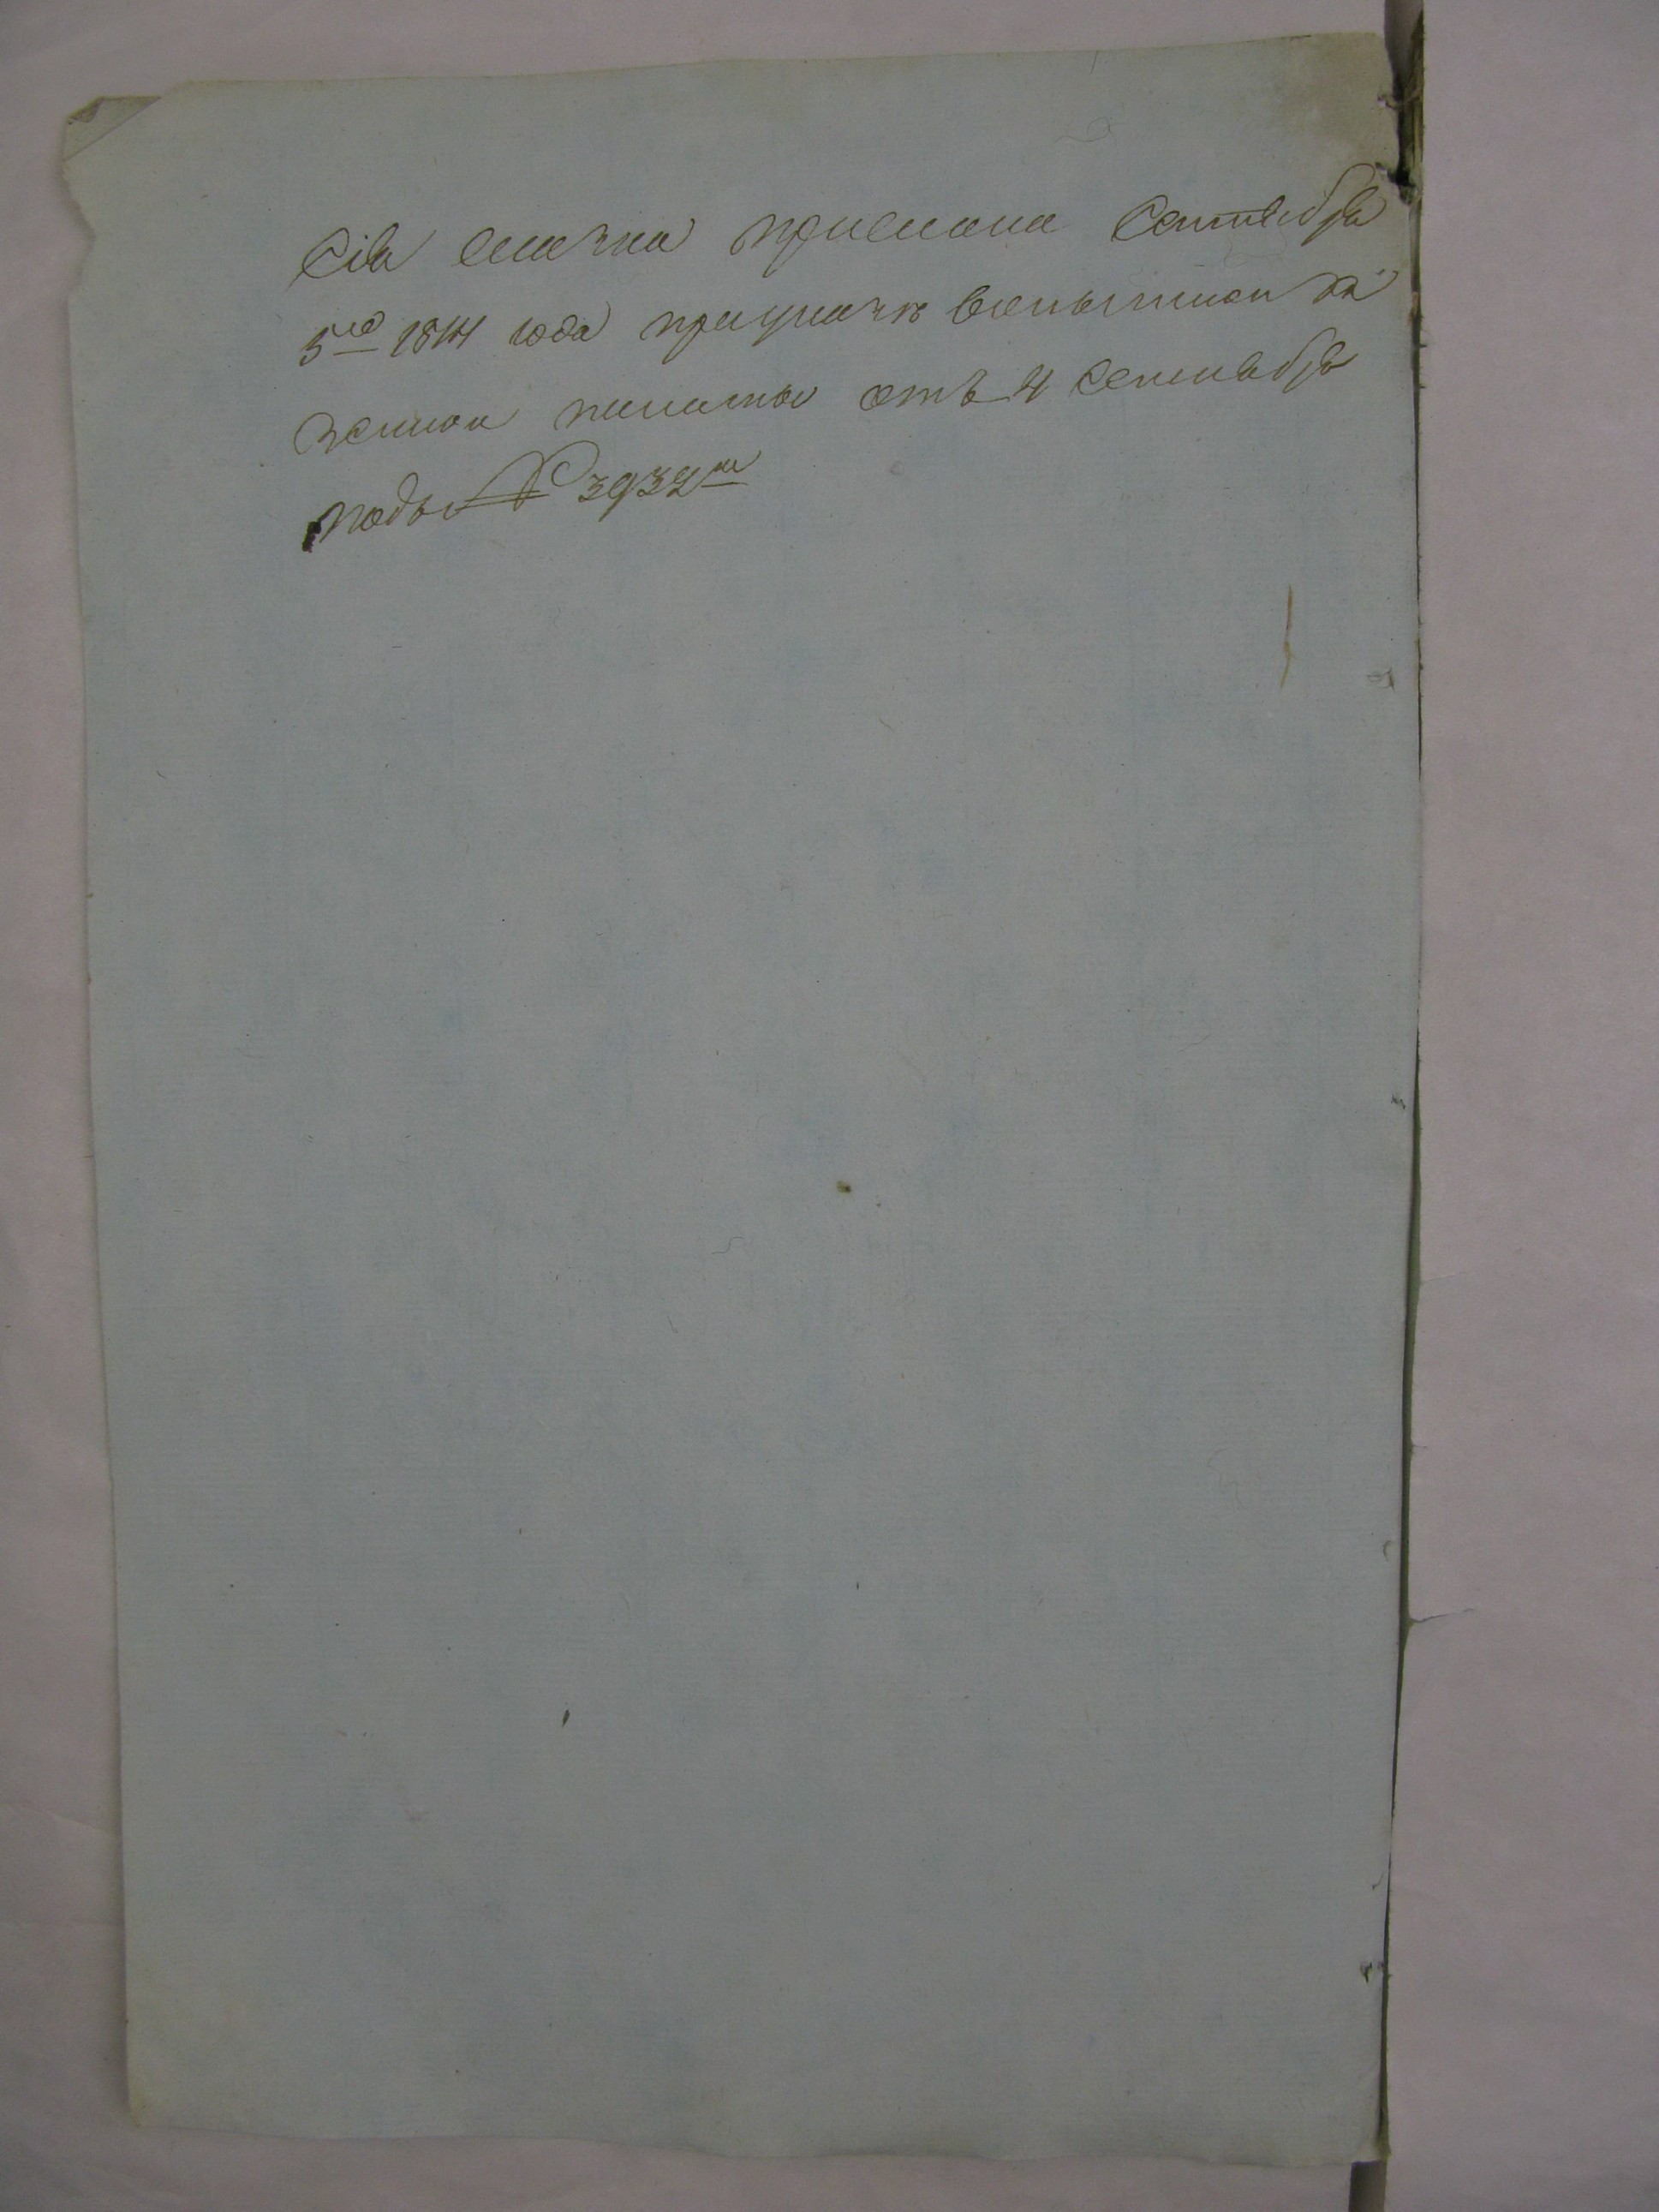 Сія скаска прислана Сентября
5го 1811 года приуказе Вятской ка
зенной палаты отъ 4 Сентября
подъ № 3932м